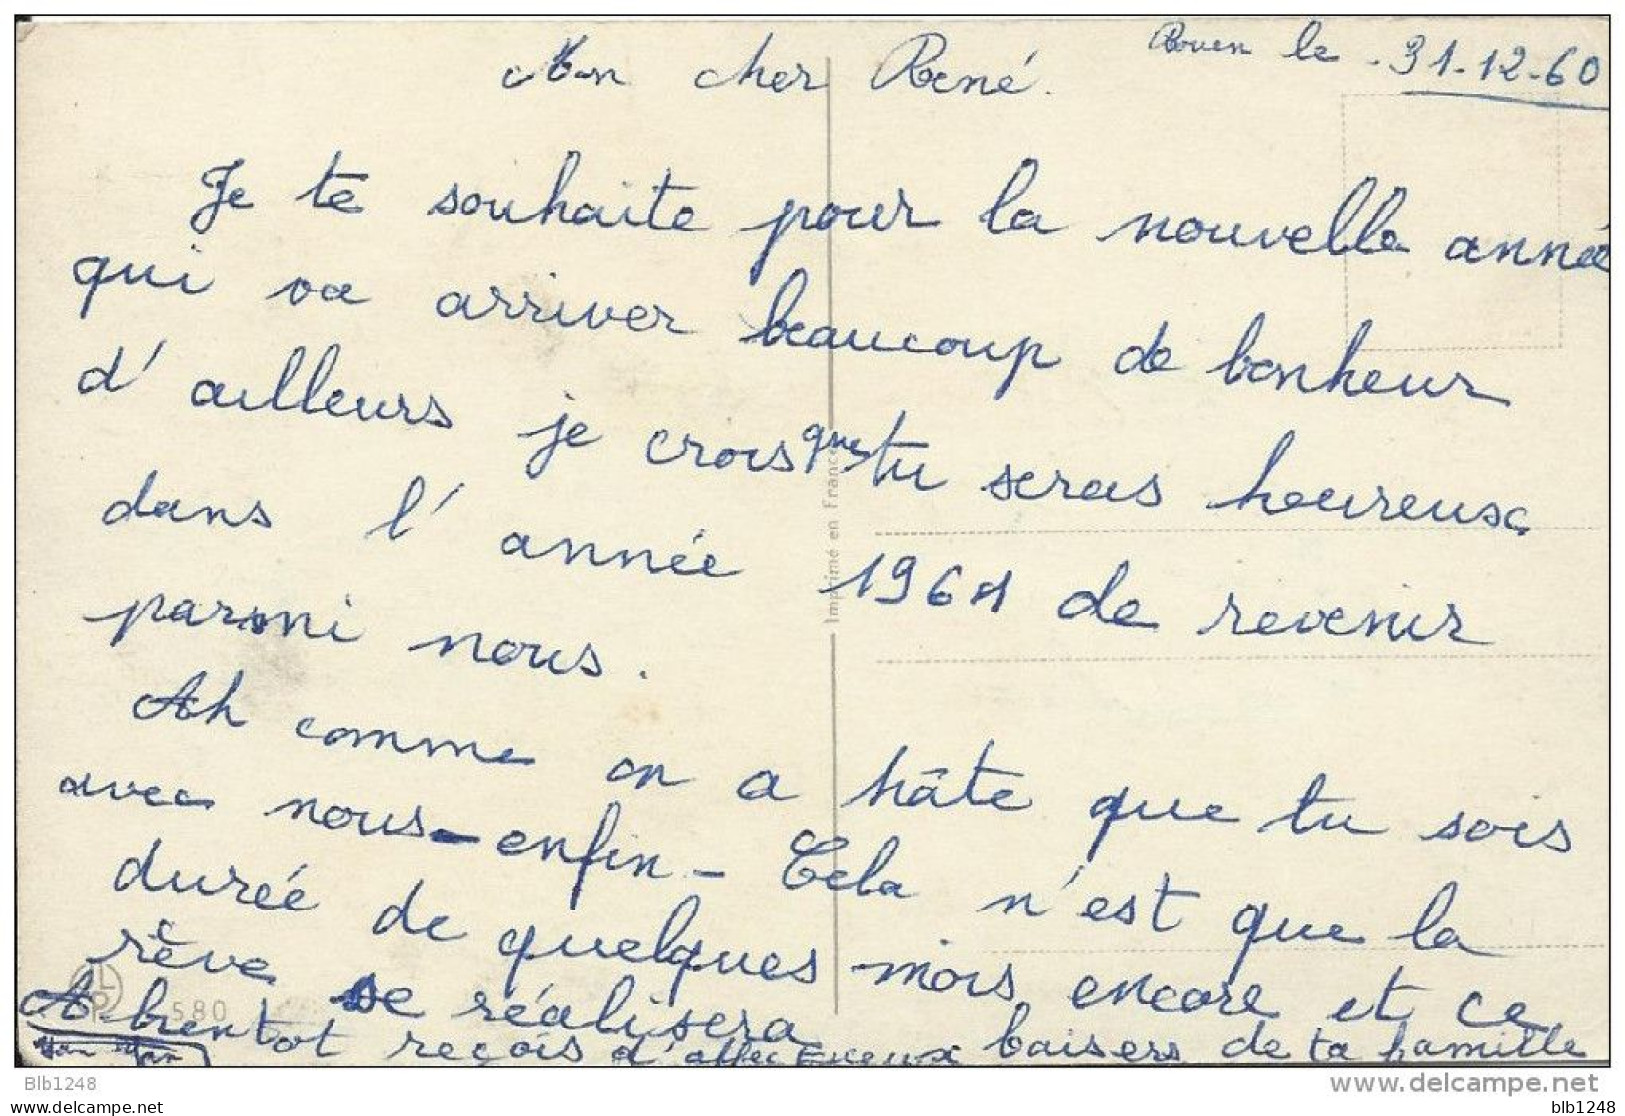 Rouen le 31-12-60
Mon cher René.
Je te souhaite pour la nouvelle année
qui va arriver beaucoup de bonheur
d'ailleurs je crois que tu seras heureux
dans l'année 1961 de revenir
parmi nous.
Ah comme on a hâte que tu sois
avec nous - enfin - Cela n'est que la
durée de quelques mois encore et ce
rêve se réalisera
A bientot reçois d'affectueux baisers de ta famille
Imprimé en France
580
Blb1248
www.delcampe.net
Blb1248
blb1248